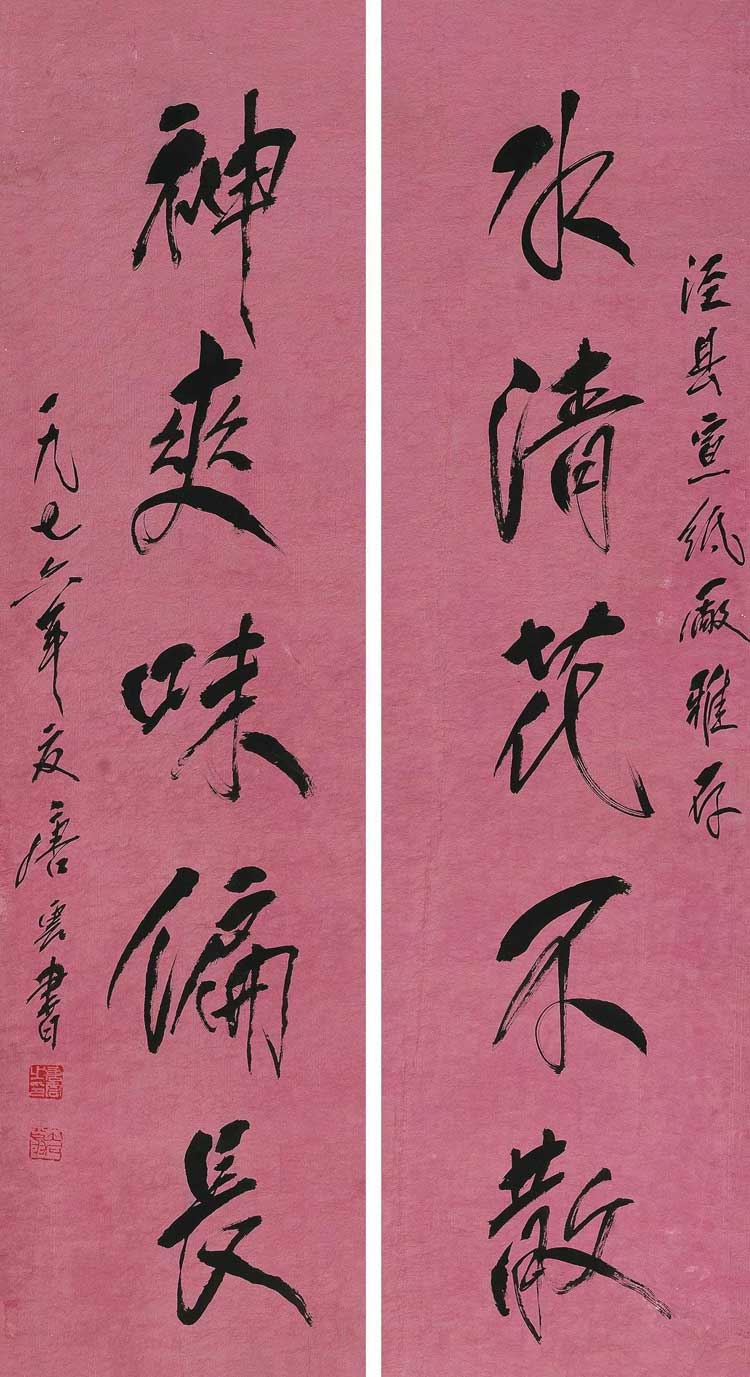 泾县宣纸厰雅存
水清花不散
神爽味偏長
一九七六年夏唐雲書